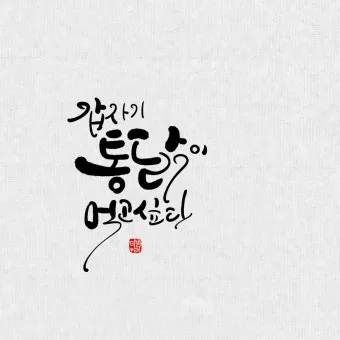 갑자기
통닭이
먹고싶다